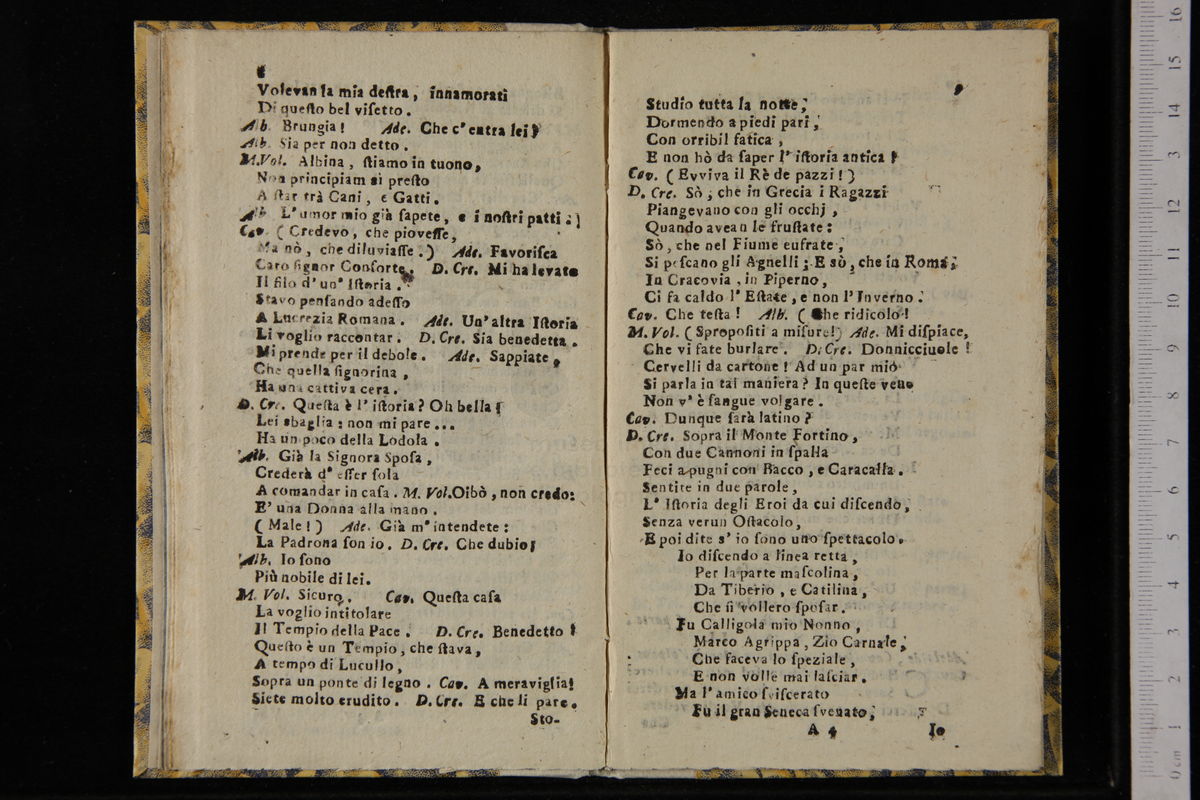 Volevan la mia deſtra, innamorati
Di queſto bel viſetto.
Alb. Brungia! Ade. Che c'entra lei?
Alb. Sia per non detto.
M.Vol. Albina, ſtiamo in tuono,
Non principiam sì preſto
A ſtar trà Cani, e Gatti.
Alb. L'umor mio già ſapete, e i noſtri patti.)
Cav. (Credevo, che pioveſſe,
Ma nò, che diluviaſſe.) Ade. Favoriſca
Caro ſignor Conſorte. D. Cre. Mi ha levato
Il filo d'un' Iſtoria.
Stavo penſando adeſſo
A Lucrezia Romana. Ade. Un'altra Iſtoria
Li voglio raccontar. D. Cre. Sia benedetta.
Mi prende per il debole. Ade. Sappiate,
Che quella ſignorina,
Ha una cattiva cera.
D. Cre. Queſta è l'iſtoria? Oh bella!
Lei sbaglia: non mi pare...
Ha un poco della Lodola.
Alb. Già la Signora Spoſa,
Crederà d'eſſer ſola
A comandar in caſa. M. Vol. Oibò, non credo:
E' una Donna alla mano.
(Male!) Ade. Già m'intendete:
La Padrona ſon io. D. Cre. Che dubio?
Alb. Io ſono
Più nobile di lei.
M. Vol. Sicuro. Cav. Queſta caſa
La voglio intitolare
Il Tempio della Pace. D. Cre. Benedetto!
Queſto è un Tempio, che ſtava,
A tempo di Lucullo,
Sopra un ponte di legno. Cav. A meraviglia!
Siete molto erudito. D. Cre. E che li pare.
Sto-
9
Studio tutta la notte;
Dormendo a piedi pari;
Con orribil fatica,
E non hò da ſaper l'iſtoria antica!
Cav. (Evviva il Rè de pazzi!)
D. Cre. Sò; che in Grecia i Ragazzi
Piangevano con gli occhj,
Quando avean le fruſtate:
Sò, che nel Fiume eufrate;
Si peſcano gli Agnelli; E sò, che in Roma;
In Cracovia, in Piperno,
Ci fa caldo l'Eſtate, e non l'Inverno.
Cav. Che teſta! Alb. (Che ridicolo!
M. Vol. (Spropoſiti a miſure!) Ade. Mi diſpiace,
Che vi fate burlare. D. Cre. Donnicciuole!
Cervelli da cartone! Ad un par mio
Si parla in tal maniera? In queſte vene
Non v'è ſangue volgare.
Cav. Dunque ſarà latino?
D. Cre. Sopra il Monte Fortino,
Con due Cannoni in ſpalla
Feci a pugni con Bacco, e Caracalla.
Sentite in due parole,
L'Iſtoria degli Eroi da cui diſcendo,
Senza verun Oſtacolo,
E poi dite s'io ſono uno ſpettacolo.
Io diſcendo a linea retta,
Per la parte maſcolina,
Da Tiberio, e Catilina,
Che ſi vollero ſpoſar.
Fu Calligola mio Nonno,
Marco Agrippa, Zio Carnale;
Che faceva lo ſpeziale,
E non volle mai laſciar.
Ma l'amico ſviſcerato
Fu il gran Seneca ſvenato;
A 4 Io